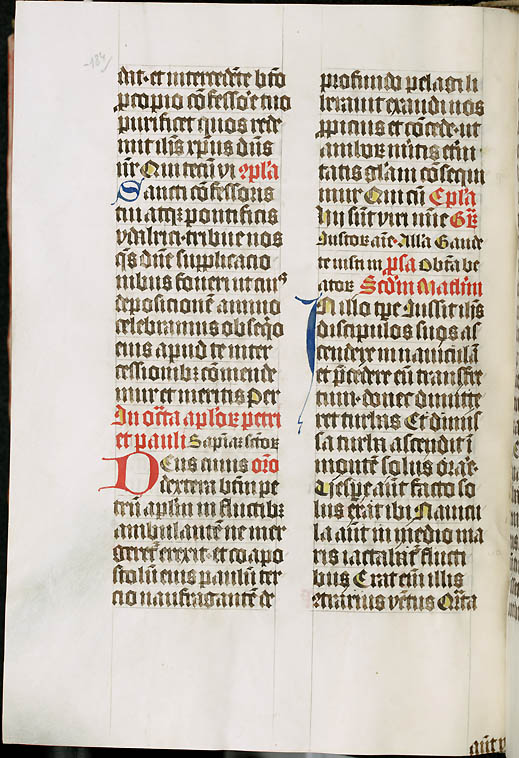 184
dit· et intercedēte btō
ꝓcopio cōfessor̄ tuo
purificet quos rede
mit ilꝰs xp̄us dn̄s
nr̄ Qui tecū vi ꝯpl̄a
Sancti cōfessoris
tui atqꝫ pontificis
vdalrici· tribue nos
qs̄ dn̄e supplicatio
nibus foueri ut cuiꝰ
depositionem annuo
celebramus obseq̄o
eius apud te inter
cessionibꝫ cōmende
mur et meritis Per
In octa aplōꝝ petri
et pauli Sapiām sctoꝝ
Deus cuius orō
dextera btm̄ pe
trū aplm̄ in fluctibꝫ
ambulantē ne mer
geret̄ erexit· et coapo
stolū eius paulū ter
cio naufragantē de
profundo pelagi li
berauit exaudi nos
ꝓpicius et cōcede· ut
amboꝝ mitis etni
tatis glām cōsequi
mur Qui cū Epl̄a
Hii sūt viri mīe Gr̄
Iustoꝝ aīe· Alla Gaude
te iusti in ꝓsa Obtā be
atoꝝ Scdm̄ Matheum
In illo tp̄e Iussit ilꝰs
discipulos suos as
cendere in nauiculā
et p̄cedere eū transfre
tum· donec dimitte
ret turbas Et dimis
sa turba ascendit ī
montē solus orāe·
Uespe aūt facto so
lus erat ibi Nauicu
la aūt in medio ma
ris iactabat̄ flucti
bus Erat em̄ illis
ꝯtrarius vētus Qr̄ta
aūt v